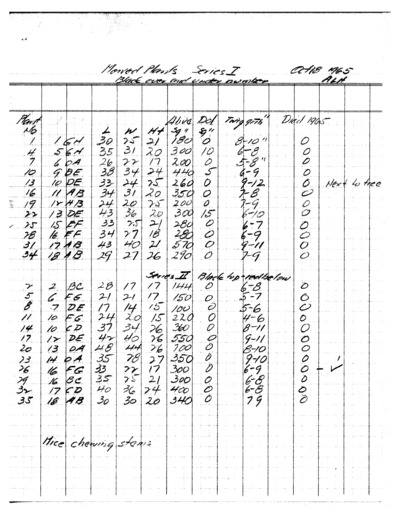 Moved Plants Series I Oct 18 1965
Black over red under number
Plant No L W Ht Alive Sq" Ded Sq" Twig grth" Died 1965
1 1 GH 30 25 21 180 0 8-10" 0
4 5 GH 35 31 20 300 10 6-8 0
7 6 OA 26 22 17 200 0 5-8" 0
10 9 BE 38 34 24 440 5 6-9 0
13 10 DE 33 24 25 260 0 9-12 0 Next to tree
16 11 AB 34 31 20 350 0 7-8 0
19 12 AB 24 20 25 200 0 7-9 0
22 13 DE 43 36 20 300 15 6-10 0
25 15 EF 33 25 21 280 0 6-7 0
28 16 EF 34 27 18 280 0 6-9 0
31 17 AB 43 40 21 570 0 9-11 0
34 18 AB 29 27 26 290 0 7-9 0
Series II Black top-red below
2 2 BC 28 17 17 144 0 6-8 0
5 6 FG 21 21 17 150 0 5-7 0
8 7 DE 17 14 15 100 0 5-6 0
11 10 FG 24 20 15 220 0 4-6 0
14 10 CD 37 34 26 360 0 8-11 0
17 12 DE 42 40 26 550 0 9-11 0
20 13 OA 48 44 26 700 0 8-10 0
23 14 OA 35 28 27 350 0 9-10 0
26 16 FG 33 22 17 300 0 6-9 0 - ✓
29 16 BC 35 25 21 300 0 6-8 0
32 17 CD 40 36 24 400 0 6-8 0
35 18 AB 30 30 20 340 0 7 9 0
Mice chewing stems